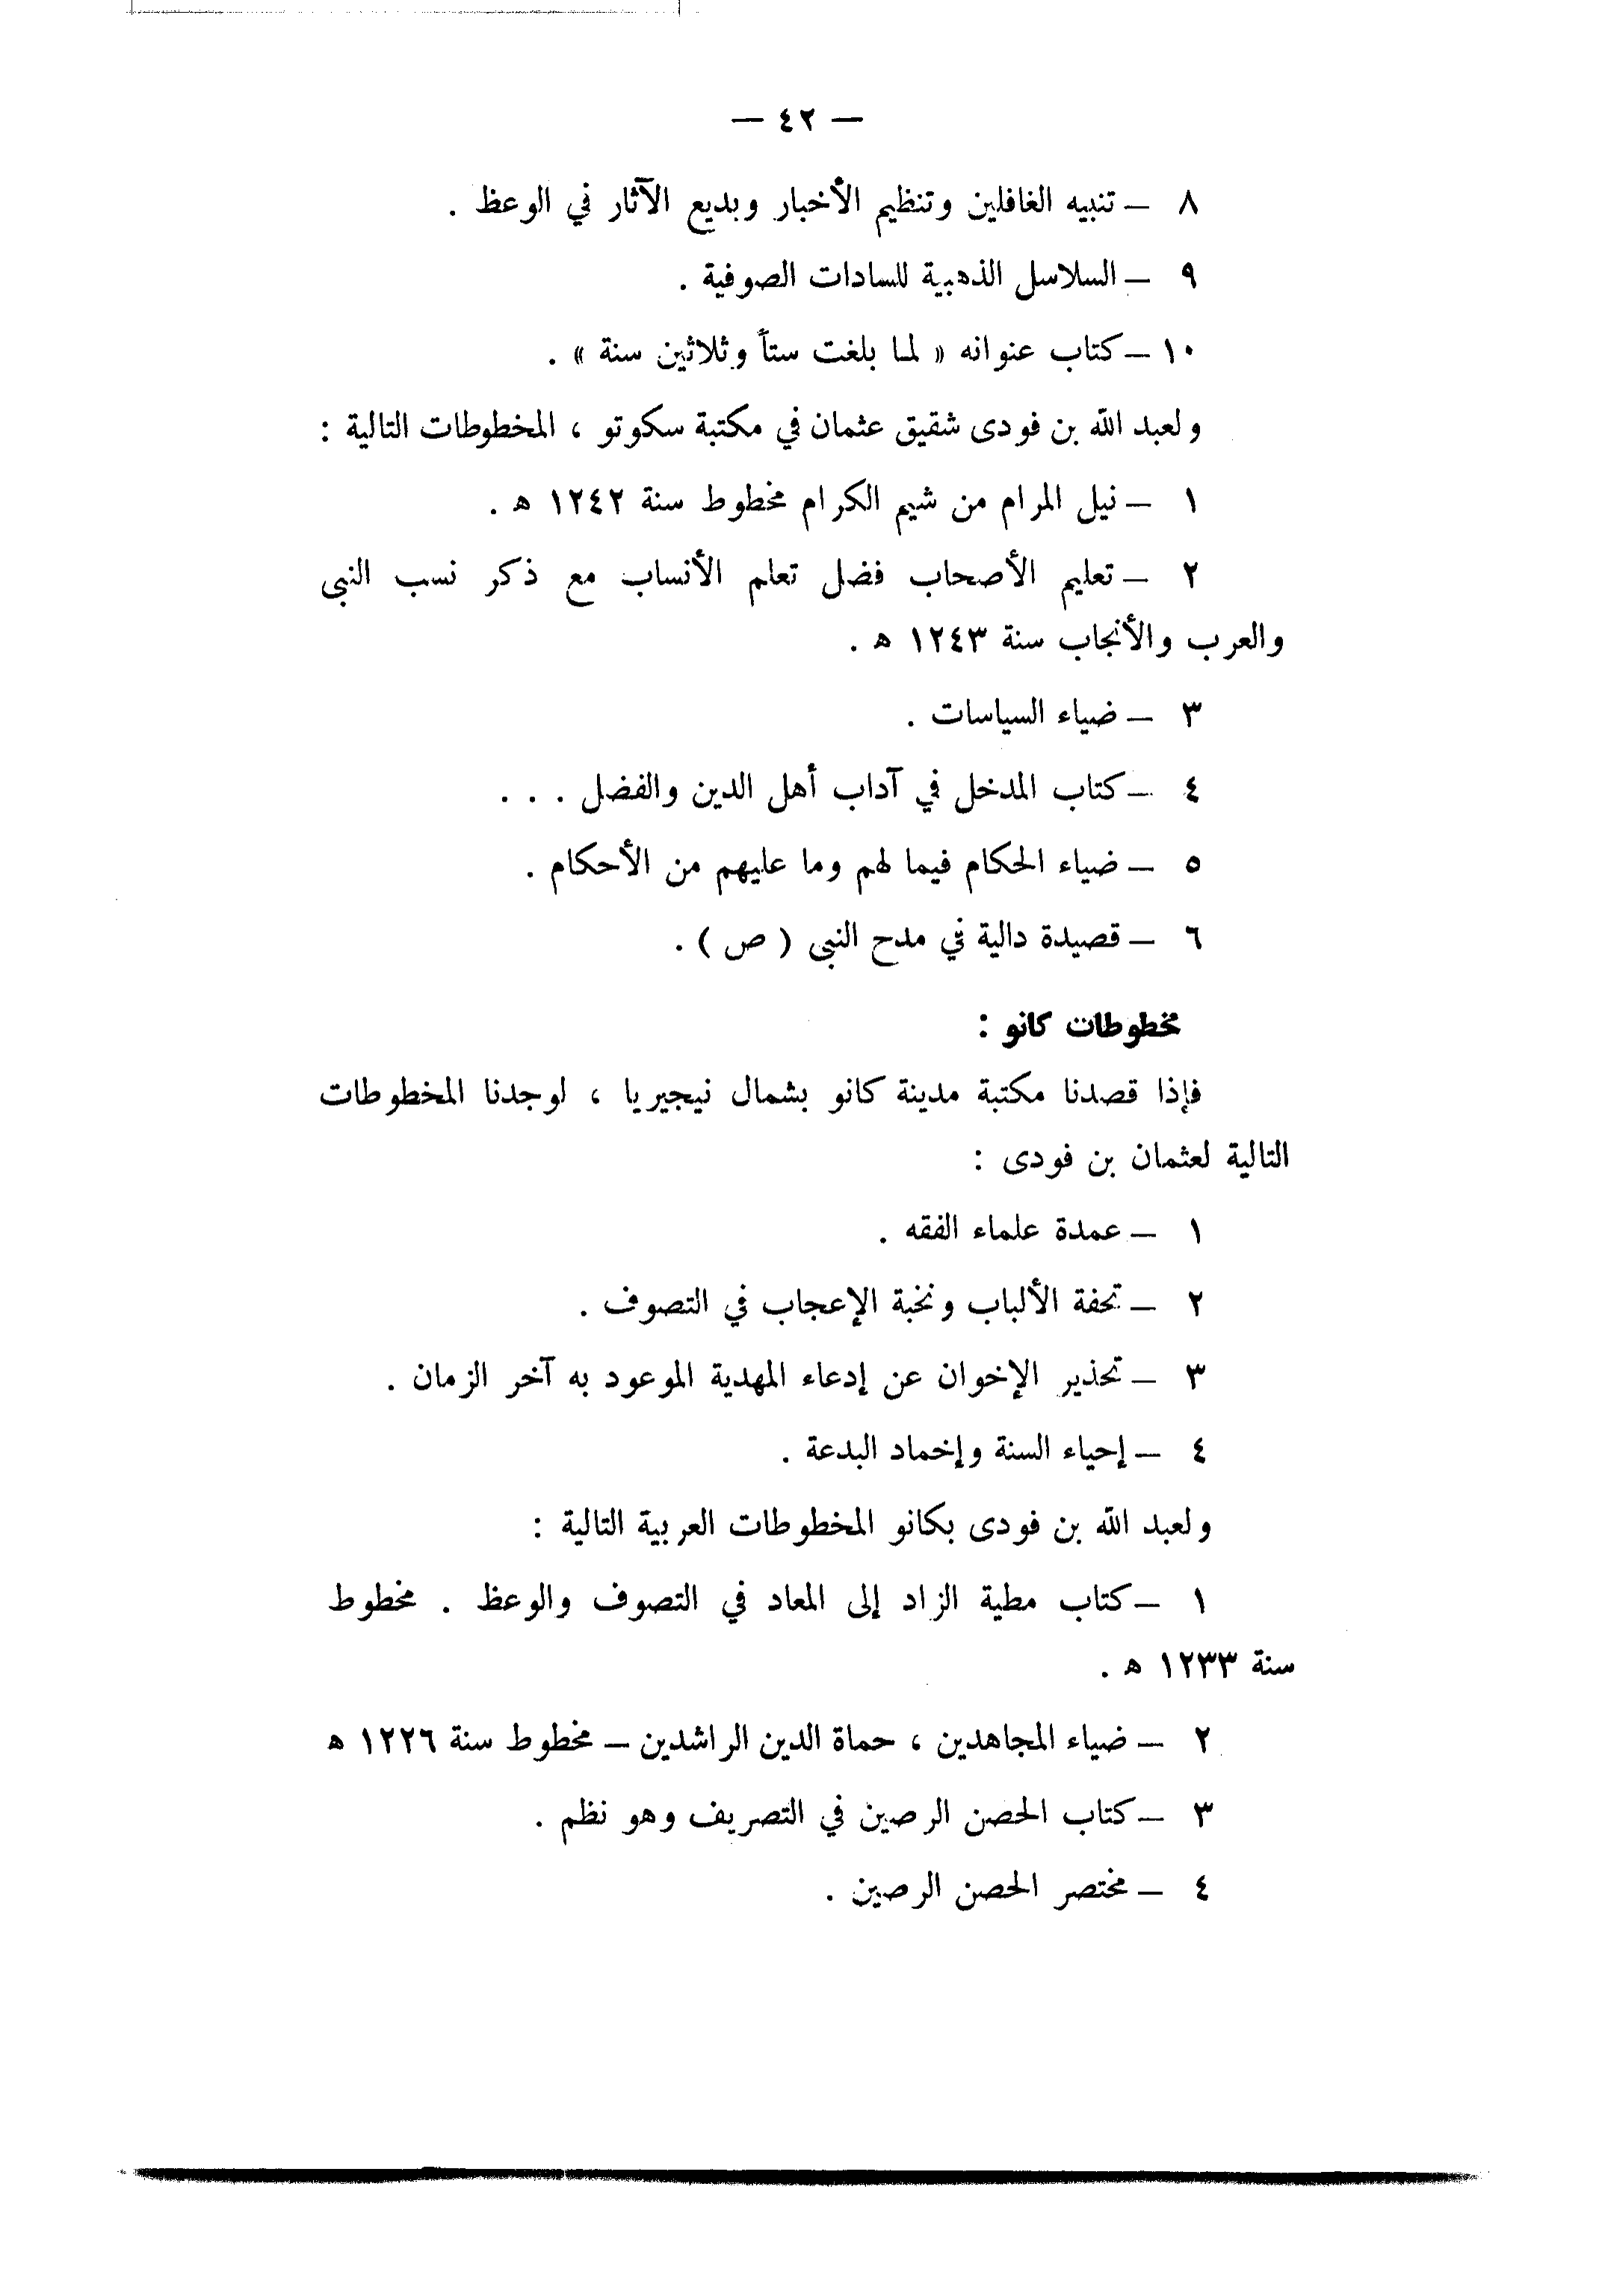 — ٤٢ —
٨ — تنبيه الغافلين وتنظيم الأخبار وبديع الآثار في الوعظ .
٩ — السلاسل الذهبية للسادات الصوفية .
١٠ — كتاب عنوانه « لما بلغت ستاً وثلاثين سنة » .
ولعبد الله بن فودى شقيق عثمان في مكتبة سكوتو ، المخطوطات التالية :
١ — نيل المرام من شيم الكرام مخطوط سنة ١٢٤٢ ه .
٢ — تعليم الأصحاب فضل تعلم الأنساب مع ذكر نسب النبى
والعرب والأنجاب سنة ١٢٤٣ ه .
٣ — ضياء السياسات .
٤ — كتاب المدخل في آداب أهل الدين والفضل . . .
٥ — ضياء الحكام فيما لهم وما عليهم من الأحكام .
٦ — قصيدة دالية في مدح النبى ( ص ) .
مخطوطات كانو :
فإذا قصدنا مكتبة مدينة كانو بشمال نيجيريا ، لوجدنا المخطوطات
التالية لعثمان بن فودى :
١ — عمدة علماء الفقه .
٢ — تحفة الألباب ونخبة الإعجاب في التصوف .
٣ — تحذير الإخوان عن إدعاء المهدية الموعود به آخر الزمان .
٤ — إحياء السنة وإخماد البدعة .
ولعبد الله بن فودى بكانو المخطوطات العربية التالية :
١ — كتاب مطية الزاد إلى المعاد في التصوف والوعظ . مخطوط
سنة ١٢٣٣ ه .
٢ — ضياء المجاهدين ، حماة الدين الراشدين — مخطوط سنة ١٢٢٦ ه
٣ — كتاب الحصن الرصين في التصريف وهو نظم .
٤ — مختصر الحصن الرصين .